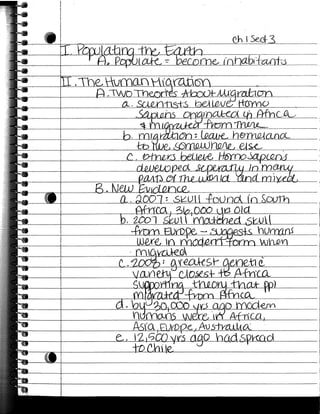 Ch 1 Sect 3
I. Populating the Earth
A. Populate = become inhabitants
II. The Human Migration
A. Two Theories About Migration
a. scientists believe Homo
Sapiens originated in Africa
& migrated from there
b. migration: leave homeland
to live somewhere else
c. others believe Homo Sapiens
developed seperatly in many
parts of the world and mixed
B. New Evidence
a. 2007: skull found in South
Africa, 36,000 yrs old
b. 2007 skull matched skull
from Europe - suggests humans
were in modern form when
migrated
c. 2008: greatest genetic
variety closest to Africa
supporting theory that ppl
migrated from Africa
d. by 30,000 yrs ago modern
humans were in Africa,
Asia, Europe, Australia
e. 12,500 yrs ago had spread
to Chile